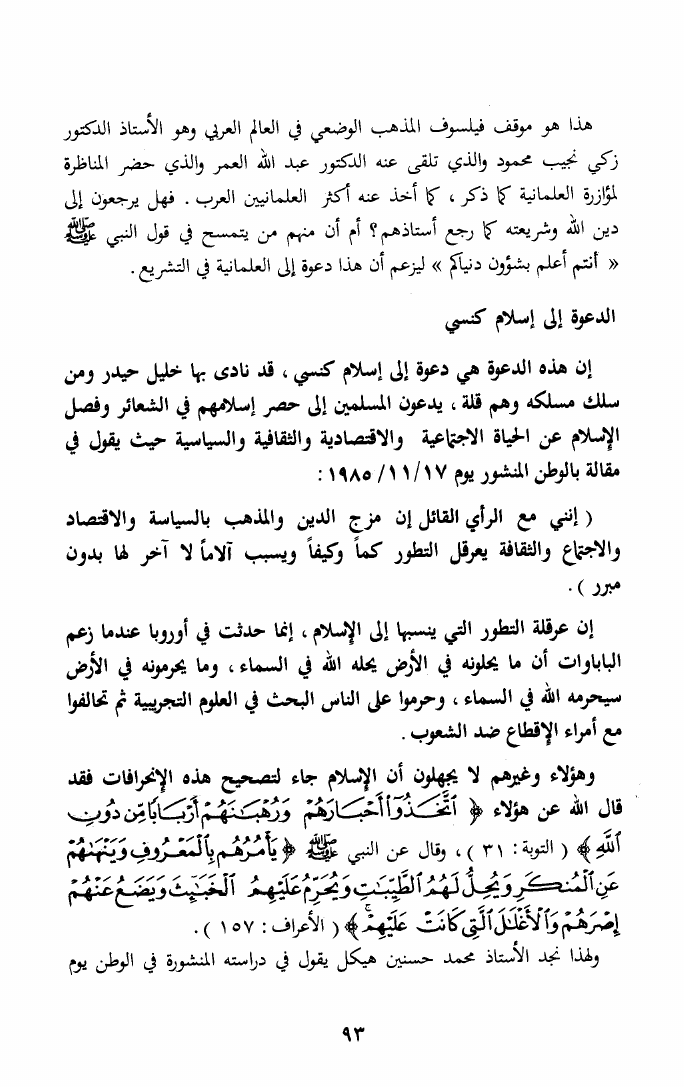 هذا هو موقف فيلسوف المذهب الوضعي في العالم العربي وهو الأستاذ الدكتور
زكي نجيب محمود والذي تلقى عنه الدكتور عبد الله العمر والذي حضر المناظرة
لمؤازرة العلمانية كما ذكر ، كما أخذ عنه أكثر العلمانيين العرب . فهل يرجعون إلى
دين الله وشريعته كما رجع أستاذهم؟ أم أن منهم من يتمسح في قول النبي ﷺ
« أنتم أعلم بشؤون دنياكم » ليزعم أن هذا دعوة إلى العلمانية في التشريع .
الدعوة إلى إسلام كنسي
إن هذه الدعوة هي دعوة إلى إسلام كنسي ، قد نادى بها خليل حيدر ومن
سلك مسلكه وهم قلة ، يدعون المسلمين إلى حصر إسلامهم في الشعائر وفصل
الإسلام عن الحياة الاجتماعية والاقتصادية والثقافية والسياسية حيث يقول في
مقالة بالوطن المنشور يوم ١٩٨٥/١١/١٧ :
( إنني مع الرأي القائل إن مزج الدين والمذهب بالسياسة والاقتصاد
والاجتماع والثقافة يعرقل التطور كماً وكيفاً ويسبب آلاماً لا آخر لها بدون
مبرر ) .
إن عرقلة التطور التي ينسبها إلى الإسلام ، إنما حدثت في أوروبا عندما زعم
الباباوات أن ما يحلونه في الأرض يحله الله في السماء ، وما يحرمونه في الأرض
سيحرمه الله في السماء ، وحرموا على الناس البحث في العلوم التجريبية ثم تحالفوا
مع أمراء الإقطاع ضد الشعوب .
وهؤلاء وغيرهم لا يجهلون أن الإسلام جاء لتصحيح هذه الإنحرافات فقد
قال الله عن هؤلاء ﴿ ٱتَّخَذُوٓا۟ أَحْبَارَهُمْ وَرُهْبَٰنَهُمْ أَرْبَابًا مِّن دُونِ
ٱللَّهِ ﴾ ( التوبة : ٣١ ) ، وقال عن النبي ﷺ ﴿ يَأْمُرُهُم بِٱلْمَعْرُوفِ وَيَنْهَىٰهُمْ
عَنِ ٱلْمُنكَرِ وَيُحِلُّ لَهُمُ ٱلطَّيِّبَٰتِ وَيُحَرِّمُ عَلَيْهِمُ ٱلْخَبَٰٓئِثَ وَيَضَعُ عَنْهُمْ
إِصْرَهُمْ وَٱلْأَغْلَٰلَ ٱلَّتِى كَانَتْ عَلَيْهِمْ ۚ ﴾ ( الأعراف : ١٥٧ ) .
ولهذا نجد الأستاذ محمد حسنين هيكل يقول في دراسته المنشورة في الوطن يوم
٩٣